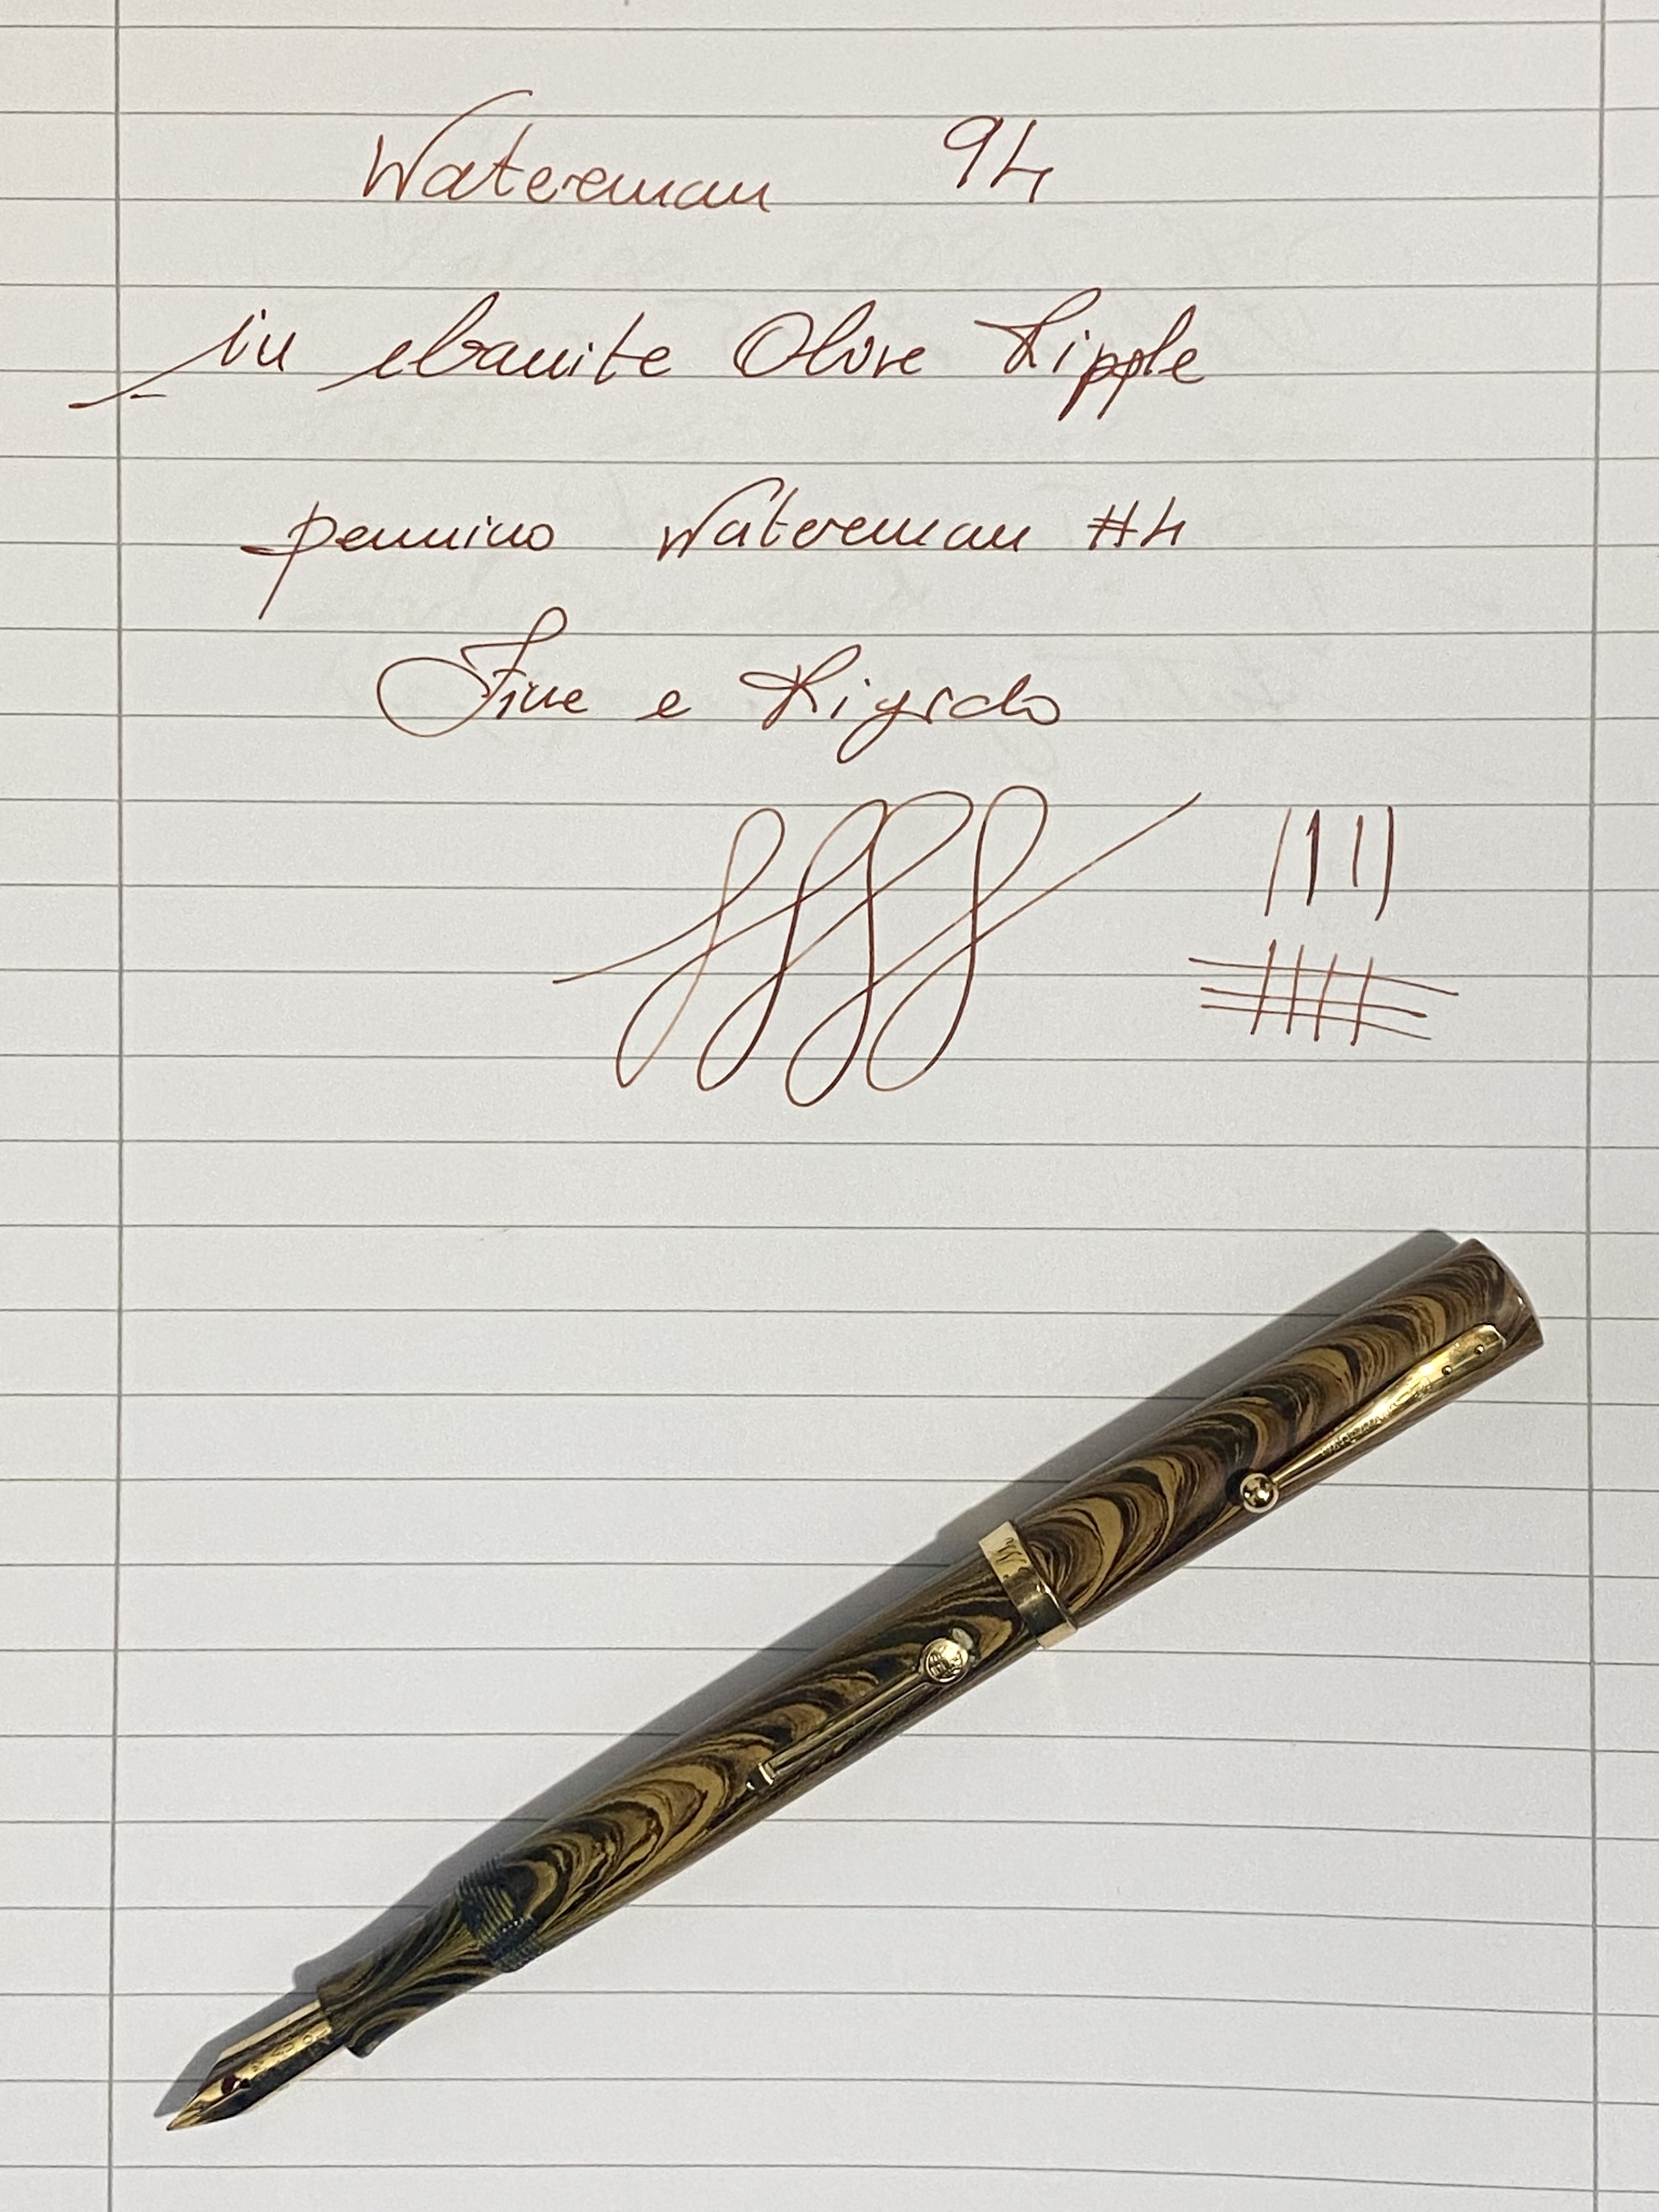 Waterman 94
in ebanite Olive Ripple
pennino Waterman #4
Fine e Rigido